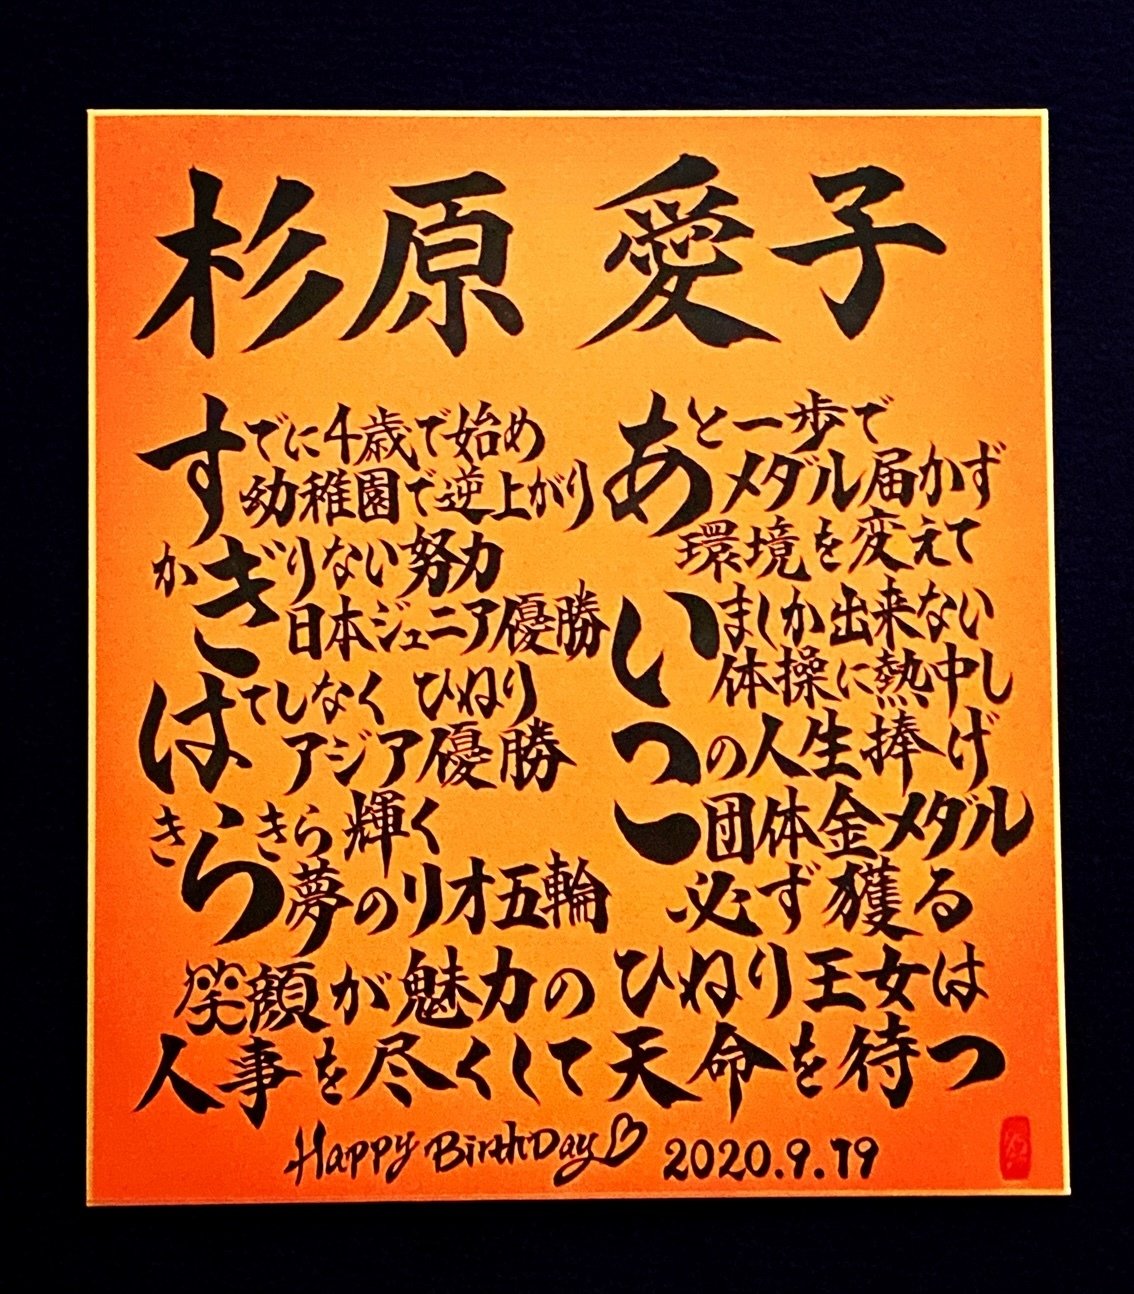 杉原 愛子
すでに4歳で始め
幼稚園で逆上がり
かぎりない努力
日本ジュニア優勝
はてしなく ひねり
アジア優勝
きらきら輝く
夢のリオ五輪
あと一歩で
メダル届かず
環境を変えて
いましか出来ない
体操に熱中し
つの人生捧げ
団体金メダル
必ず獲る
笑顔が魅力のひねり王女は
人事を尽くして天命を待つ
Happy BirthDay♡ 2020.9.19